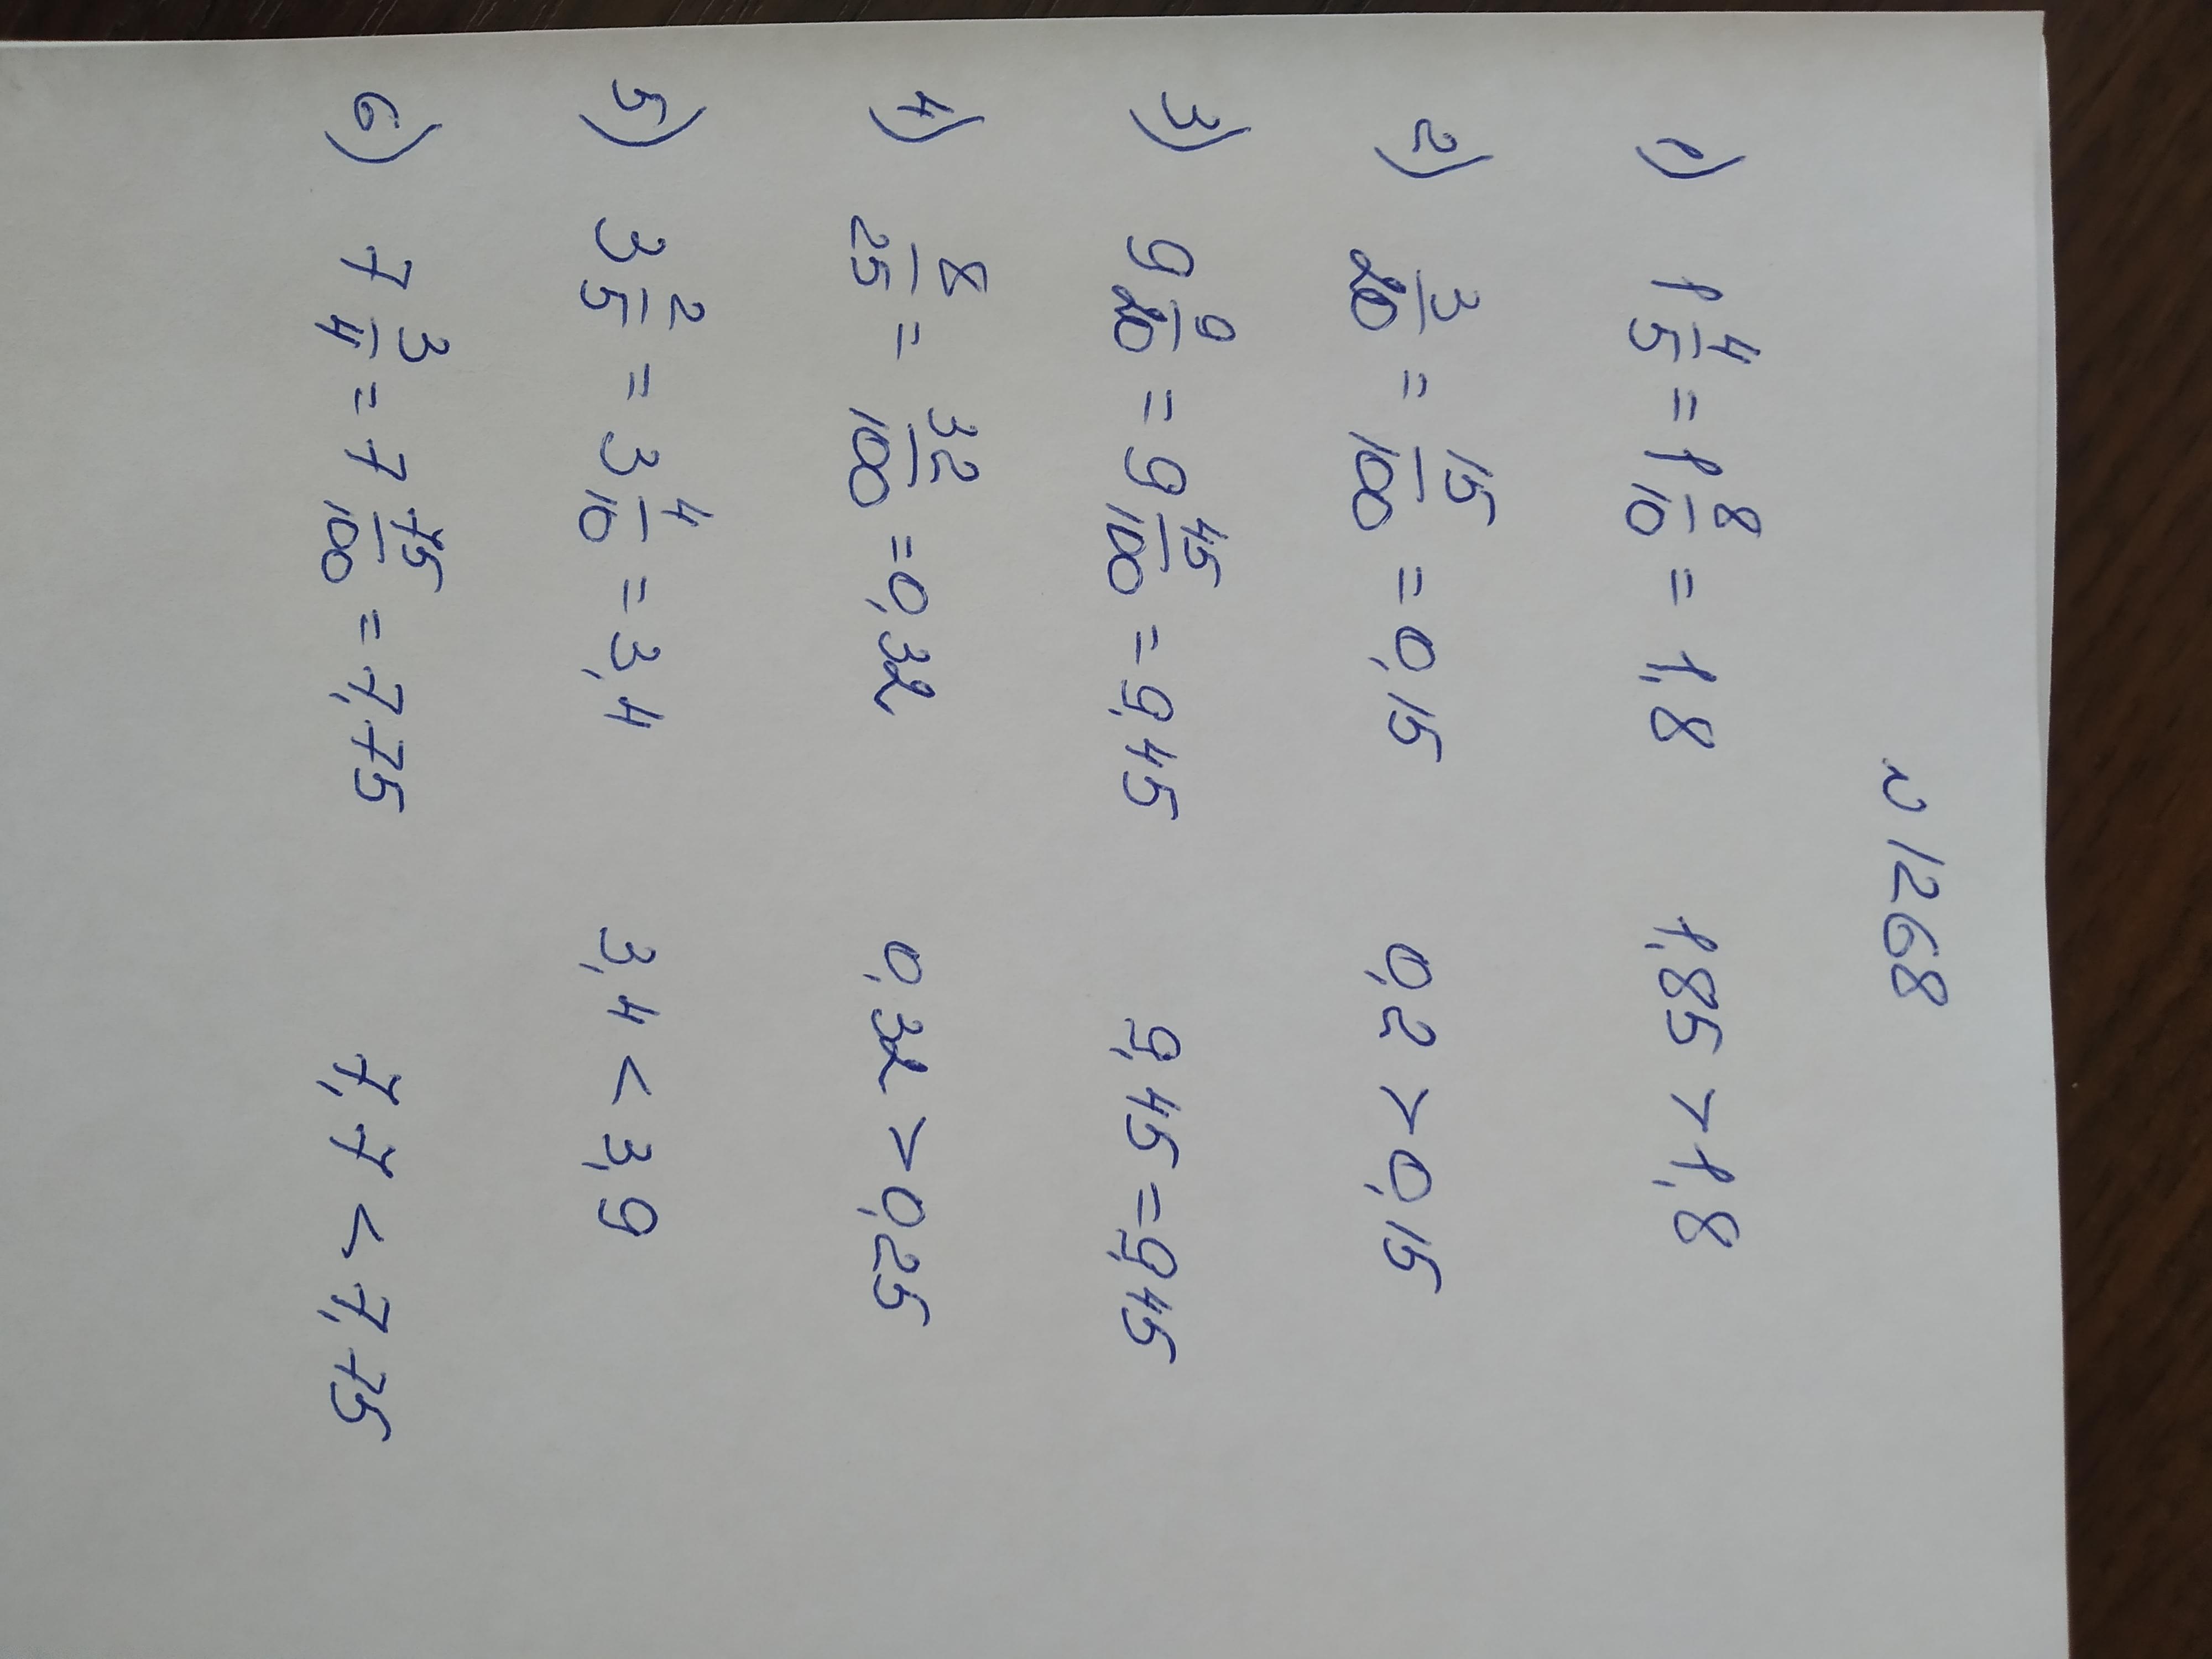 N 1268
1) 1 4/5 = 1 8/10 = 1,8 1,85 > 1,8
2) 3/20 = 15/100 = 0,15 0,2 > 0,15
3) 9 9/20 = 9 45/100 = 9,45 9,45 = 9,45
4) 8/25 = 32/100 = 0,32 0,32 > 0,25
5) 3 2/5 = 3 4/10 = 3,4 3,4 < 3,9
6) 7 3/4 = 7 75/100 = 7,75 7,7 < 7,75